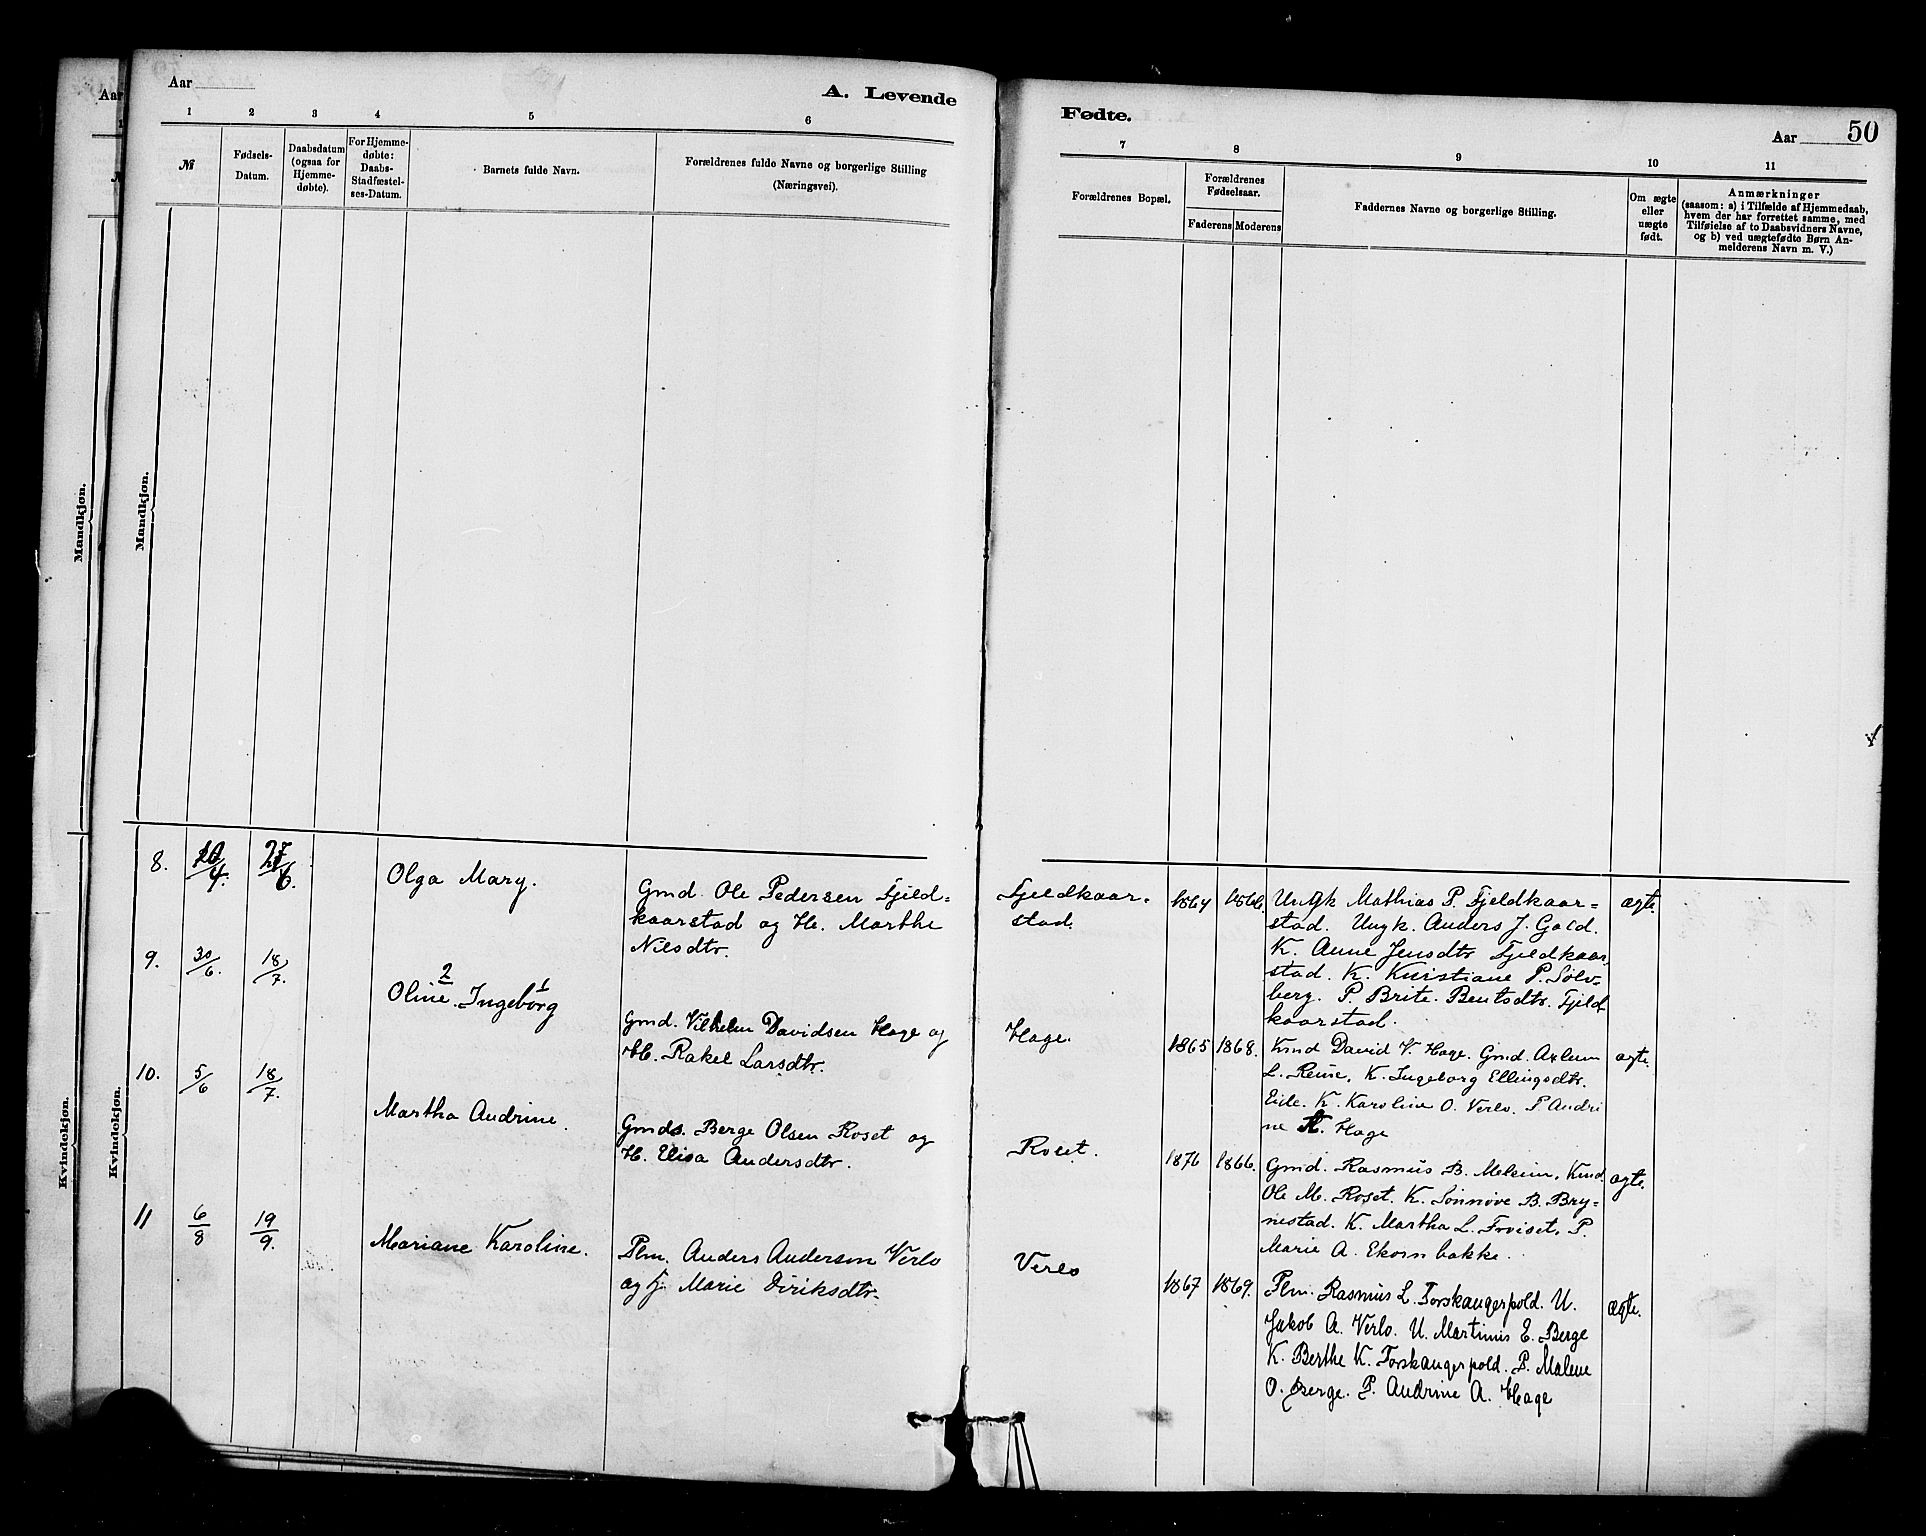 Aar
A. Levende
1 2 3 4 5 6
№
Fødsels-
Datum.
Daabsdatum
(ogsaa for
Hjemme-
døbte).
For Hjemme-
døbte:
Daabs-
Stadfæstel-
ses-Datum.
Barnets fulde Navn.
Forældrenes fulde Navne og borgerlige Stilling
(Næringsvei).
Aar
Mandkjøn.
Mandkjøn.
Kvindekjøn.
Kvindekjøn.
8. 4. 27/6. Olga Mary.
Gmd. Ole Pedersen Fjeld-
kaarstad og H. Marthe
Nilsdtr.
9. 30/6. 18/7.
2 1
Oline Ingeborg
Gmd. Vilhelm Davidsen Hage og
H. Rakel Larsdtr.
10. 5/6 18/7.
Martha Andrine.
Gmds. Berge Olsen Roset og
H. Elisa Andersdtr.
11 6/8 19/9.
Mariane Karoline.
Plm. Anders Andersen Verlo
og H. Marie Diriksdtr.
Fødte.
Aar 50
7 8 9 10 11
Forældrenes Bopæl.
Forældrenes
Fødselsaar.
Faderens Moderens
Faddernes Navne og borgerlige Stilling.
Om ægte
eller
uægte
født.
Anmærkninger
(saasom: a) i Tilfælde af Hjemmedaab,
hvem der har forrettet samme, med
Tilføielse af to Daabsvidners Navne,
og b) ved uægtefødte Børn An-
melderens Navn m. V.)
Fjeldkaar-
stad.
1864 1866. Ungk Mathias P. Fjeldkaar- ægte.
stad. Ungk. Anders J. Gald.
K. Anne Jensdtr Fjeldkaar
stad. K. Kristiane P. Solv-
berg. P. Brite Bentsdtr. Fjeld
kaarstad.
Hage. 1865 1868. Kmd David V. Hage. Gmd. Axlem ægte.
L. Reise, K. Ingeborg Ellingsdtr.
Eide. K. Karoline O. Verlo. P Andri
ne A. Hage
Roset. 1876 1866. Gmd. Rasmus B. Melheim, Kmd. ægte.
Ole M. Roset. K. Sønnøve B. Bry-
nestad. K. Martha L. Froiset. P.
Marie A. Ekornbakke.
Verlo 1867 1869. Plm. Rasmus L. Torskangerpold. U. ægte.
Jakob A. Verlo. U. Martinus E. Berge
K. Berthe K. Torskangerpold. P. Malene
O. Berge. P. Andrine A. Hage